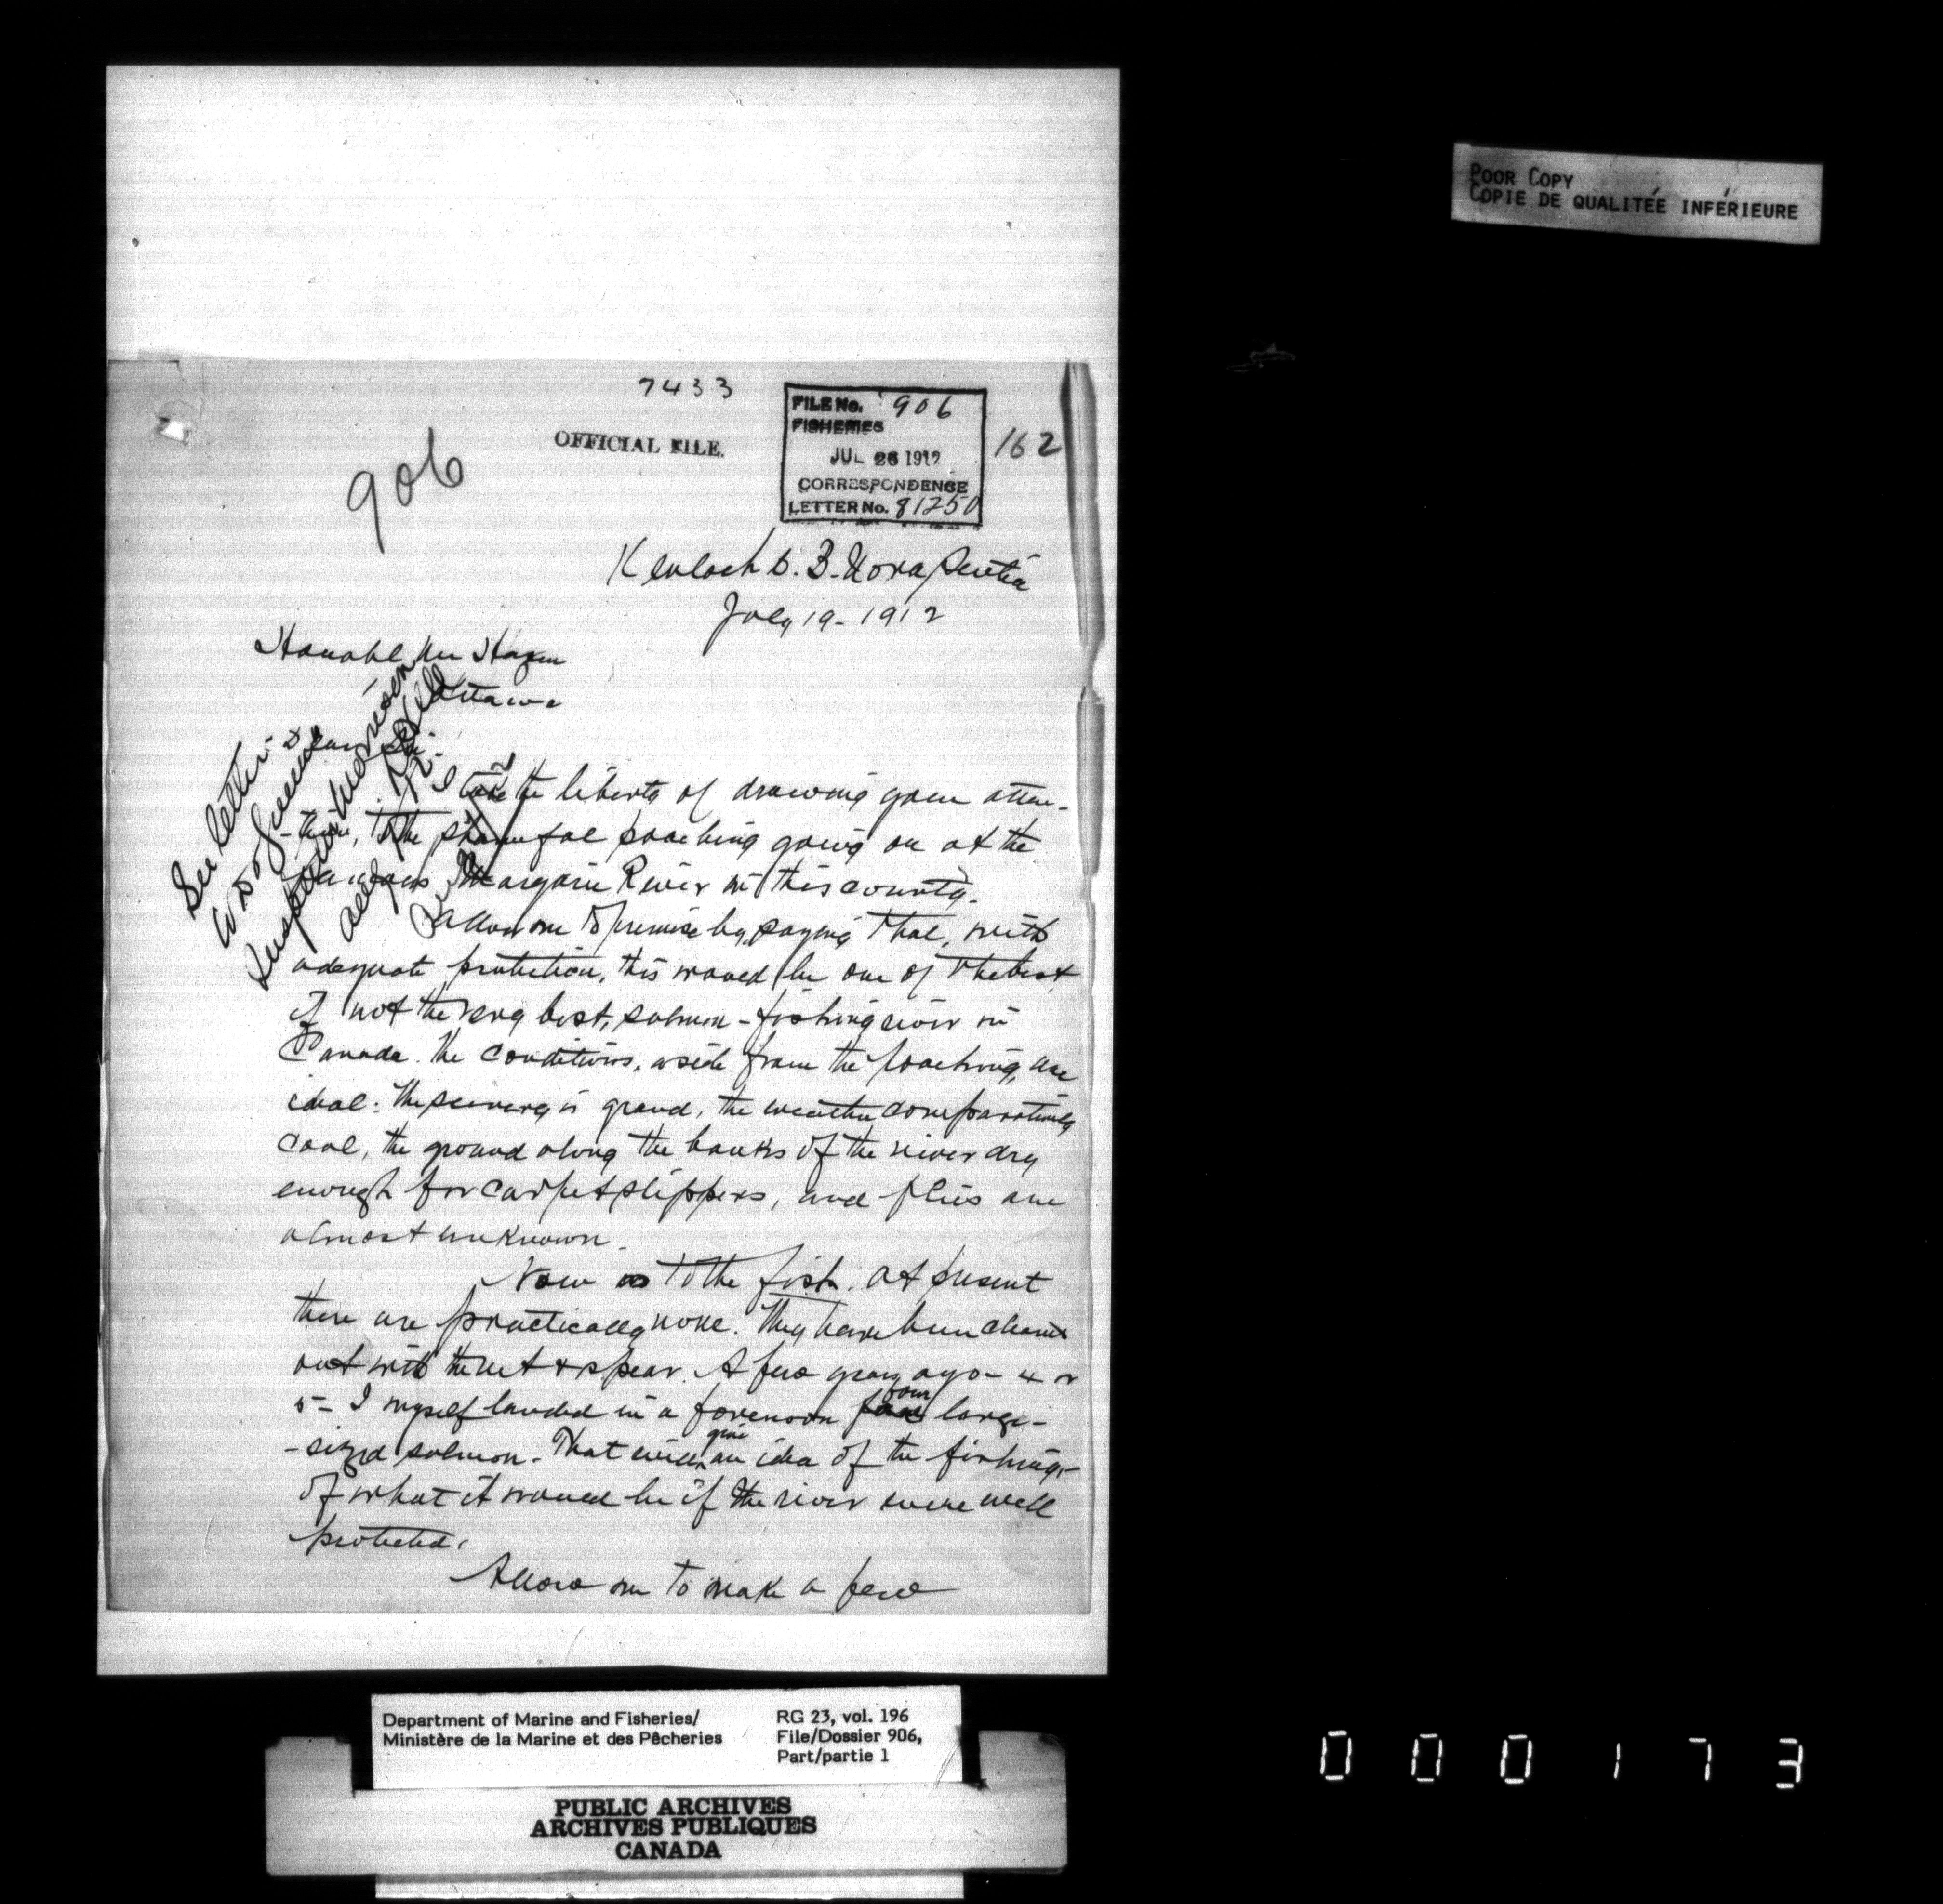 POOR COPY
COPIE DE QUALITÉE INFÉRIEURE
7433
OFFICIAL FILE.
FILE No. 906
FISHERIES
JUL 26 1912
CORRESPONDENCE
LETTER No. 81250
162
906
Kenloch C. B. Nova Scotia
July 19 - 1912
Honorable Mr Hazen
Ottawa
Dear Sir.
See letter
to
Inspector Morrison
take the liberty of drawing your atten-
-tion, to the shameful poaching going on at the
famous Margarie River in this county.
Allow me to premise by saying that, with
adequate protection, this would be one of the best,
if not the very best, salmon-fishing river in
Canada. The conditions, aside from the poaching, are
ideal: the scenery is grand, the weather comparatively
cool, the ground along the banks of the river dry
enough for carpet slippers, and flies are
almost unknown.
Now as to the fish. At present
there are practically none. They have been cleaned
out with the net & spear. A few years ago - 4 or
5 - I myself landed in a forenoon four large-
-sized salmon. That will give an idea of the fishing -
of what it would be if the river were well
protected.
Allow me to make a few
Department of Marine and Fisheries/
Ministère de la Marine et des Pêcheries
RG 23, vol. 196
File/Dossier 906,
Part/partie 1
PUBLIC ARCHIVES
ARCHIVES PUBLIQUES
CANADA
000173